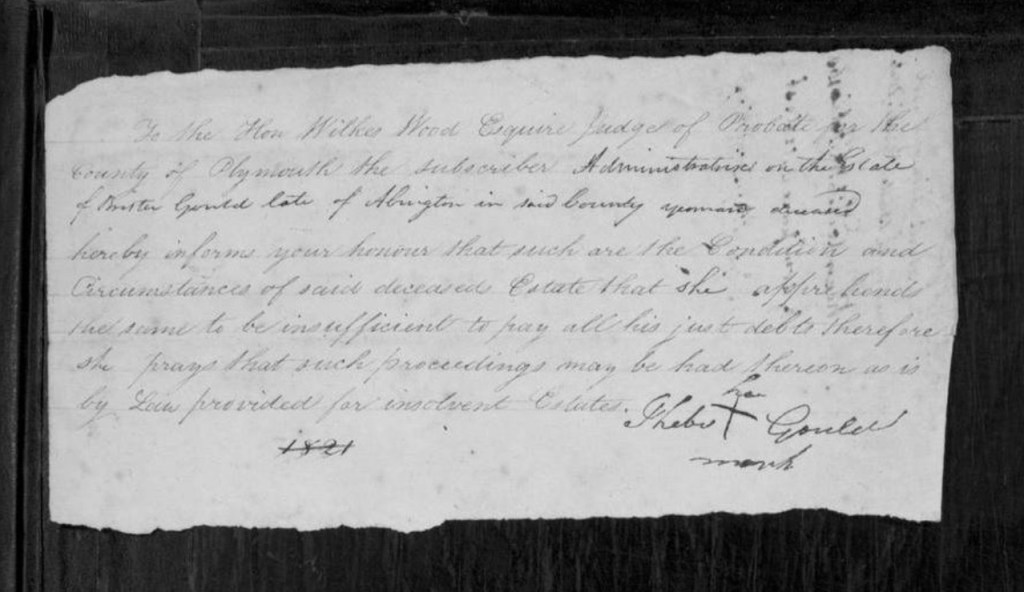 To the Hon Wilkes Wood Esquire Judge of Probate for the
County of Plymouth the subscriber Administratrix on the Estate
of Brister Gould late of Abington in said County yeoman deceased
hereby informs your honour that such are the Condition and
Circumstances of said deceaseds Estate that she apprehends
the same to be insufficient to pay all his just debts therefore
she prays that such proceedings may be had thereon as is
by Law provided for insolvent Estates.
her
Phebe X Gould
mark
1821